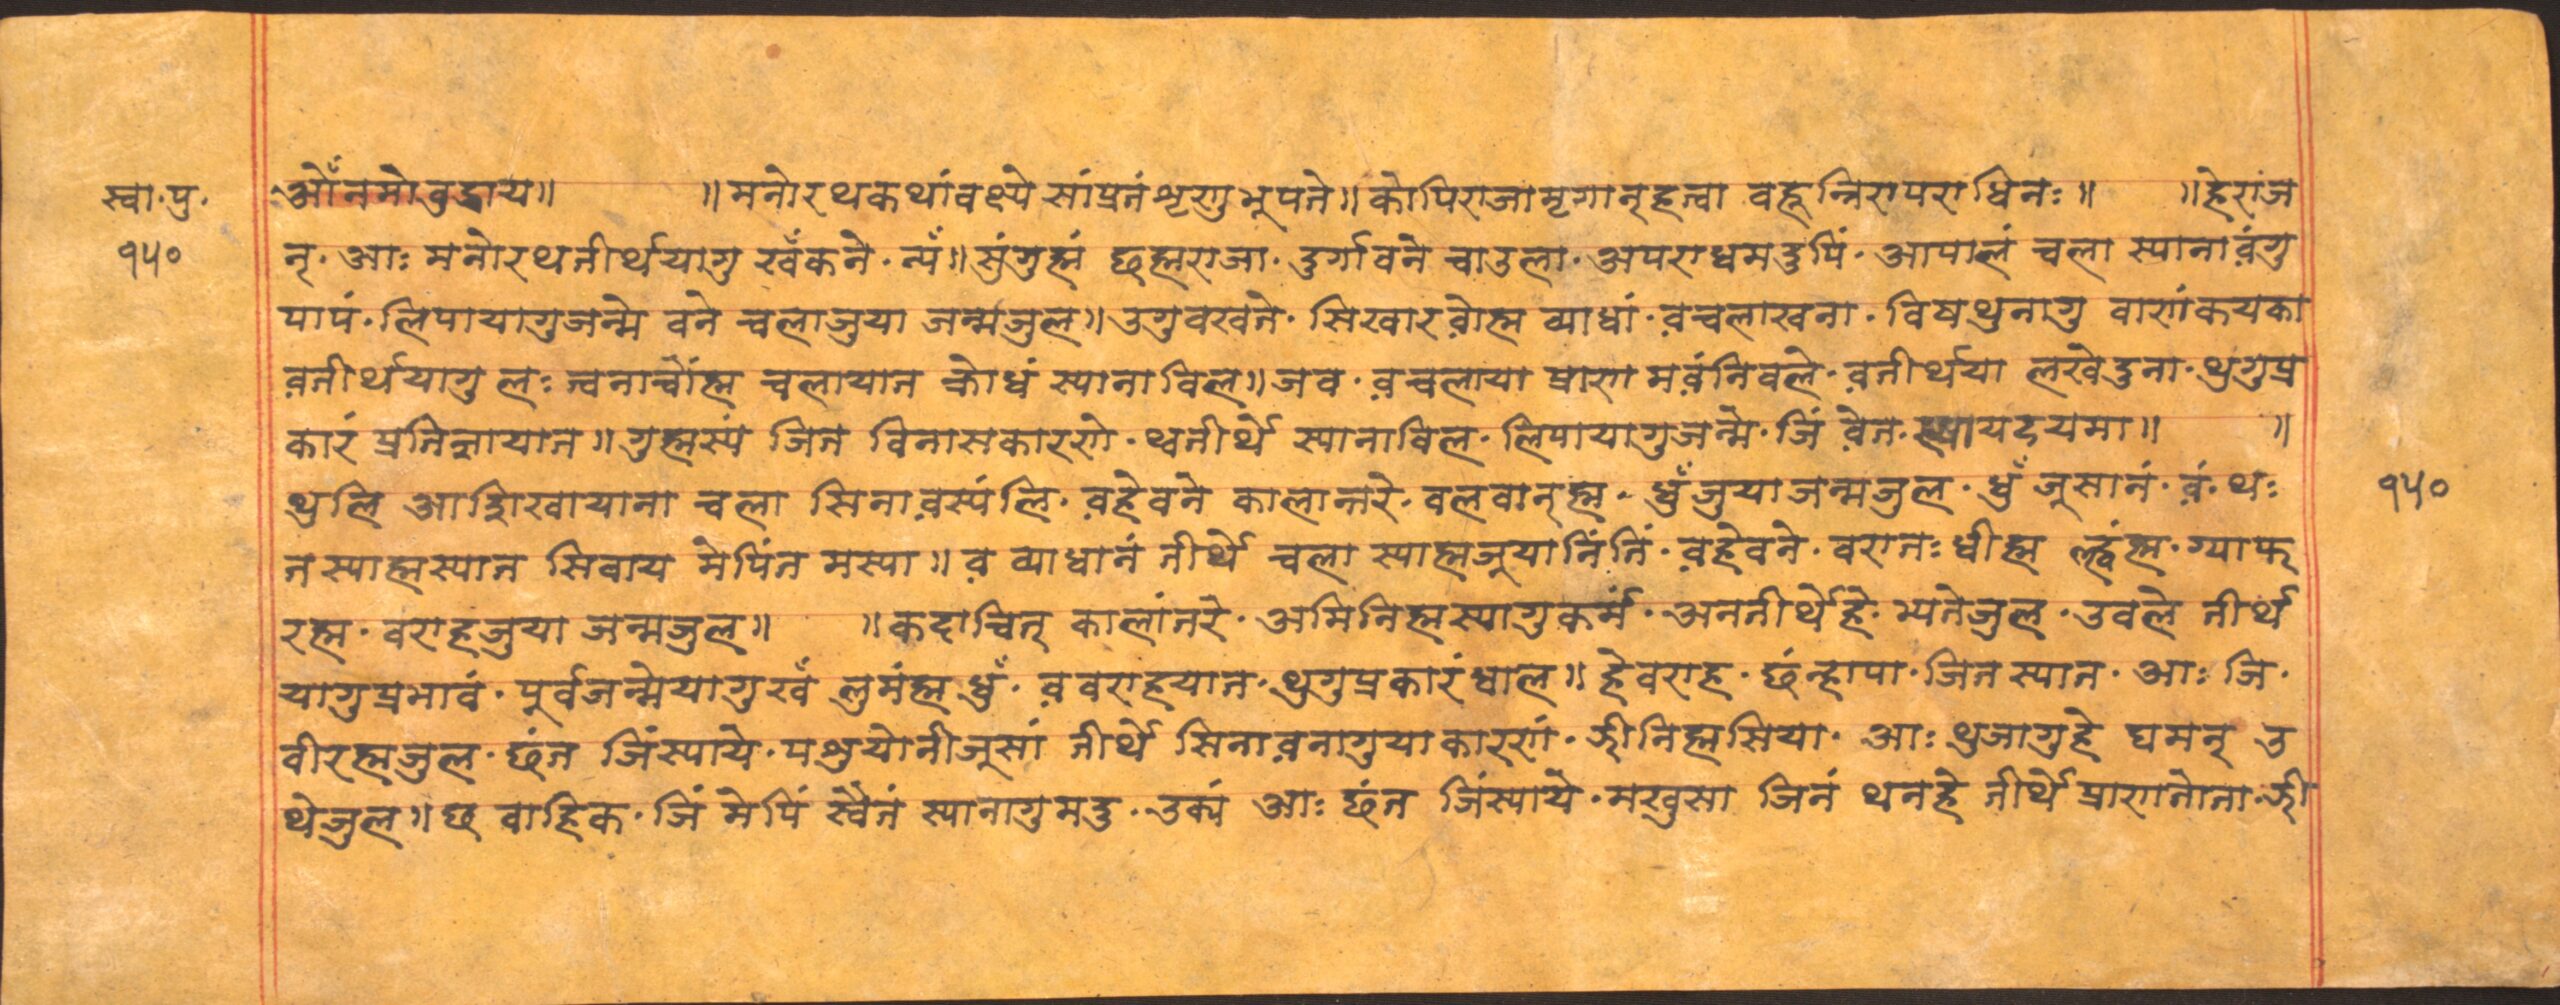 स्वा॰पु॰
१५०
ओँनमोवुद्धाय॥ ॥मनोरथकथांवक्ष्ये सांप्रतंशृणुभूपते॥कोपिराजामृगान्हत्वा वहून्निरापराधिनः॥ ॥हेराज
न्॰आः मनोरथतीर्थयागु खँकने॰न्यँ॥सुंगुह्मं छह्मराजा॰दुर्गावने चाउला॰अपराधमदुपिं॰आपालं चला स्यानाव़ंगु
पापं॰लिपायागुजन्मे वने चलाजुया जन्मजुल॥उगुवखते॰सिखारव़ोह्म व्याधां॰व़चलाखना॰विषथुनागु वाणंकयका
व़तीर्थयागु लः त्वनाच्वोंह्म चलायात क्रोधं स्यानाविल॥जव॰व़चलाया प्राण मव़ंनिवले॰व़तीर्थया लखेदुना॰थुगुप्र
कारं प्रतिज्ञायात॥गुह्मस्यं जित विनासकारणे॰थ्वतीर्थे स्यानाविल॰लिपायागुजन्मे॰जिं व़ेत॰स्यायदयमा॥ ॥
थुलि आशिखायाना चला सिनाव़स्यंलि॰व़हेवने कालान्तरे॰वलवान्ह्म॰धुँजुयाजन्मजुल॰धुँ जूसानं॰व़ं॰थः
त स्याह्मस्यात सिवाय मेपिंत मस्या॥व़ व्याधानं तीर्थे चला स्याह्मजूयानिंतिं॰व़हेवने॰वरातः धीह्म ल्ह्वंह्म॰ग्याफ
रह्म॰वराहजुया जन्मजुल॥ ॥कदाचित् कालांतरे॰अमिनिह्मस्यागुकर्म॰अनतीर्थेहे॰भ्यतेजुल॰उवले तीर्थ
यागुप्रभावं॰पूर्वजन्मेयागुखँ लुमंह्म धुँ॰व़वराहयात॰थुगुप्रकारंधाल॥हेवराह॰छंन्हापा॰जितस्यात॰आः जि॰
वीरह्मजुल॰छंत जिंस्याये॰पशुयोनीजूसां तीर्थे सिनाव़नागुयाकारणं॰झीनिह्मसिया॰आः थुजागुहे घमन् उ
थेजुल॥छ वाहिक॰जिं मेपिं स्वैतं स्यानागुमदु॰उक्यं आः छंत जिंस्याये॰मखुसा जिनं थनहे तीर्थे प्राणतोता॰झी
१५०